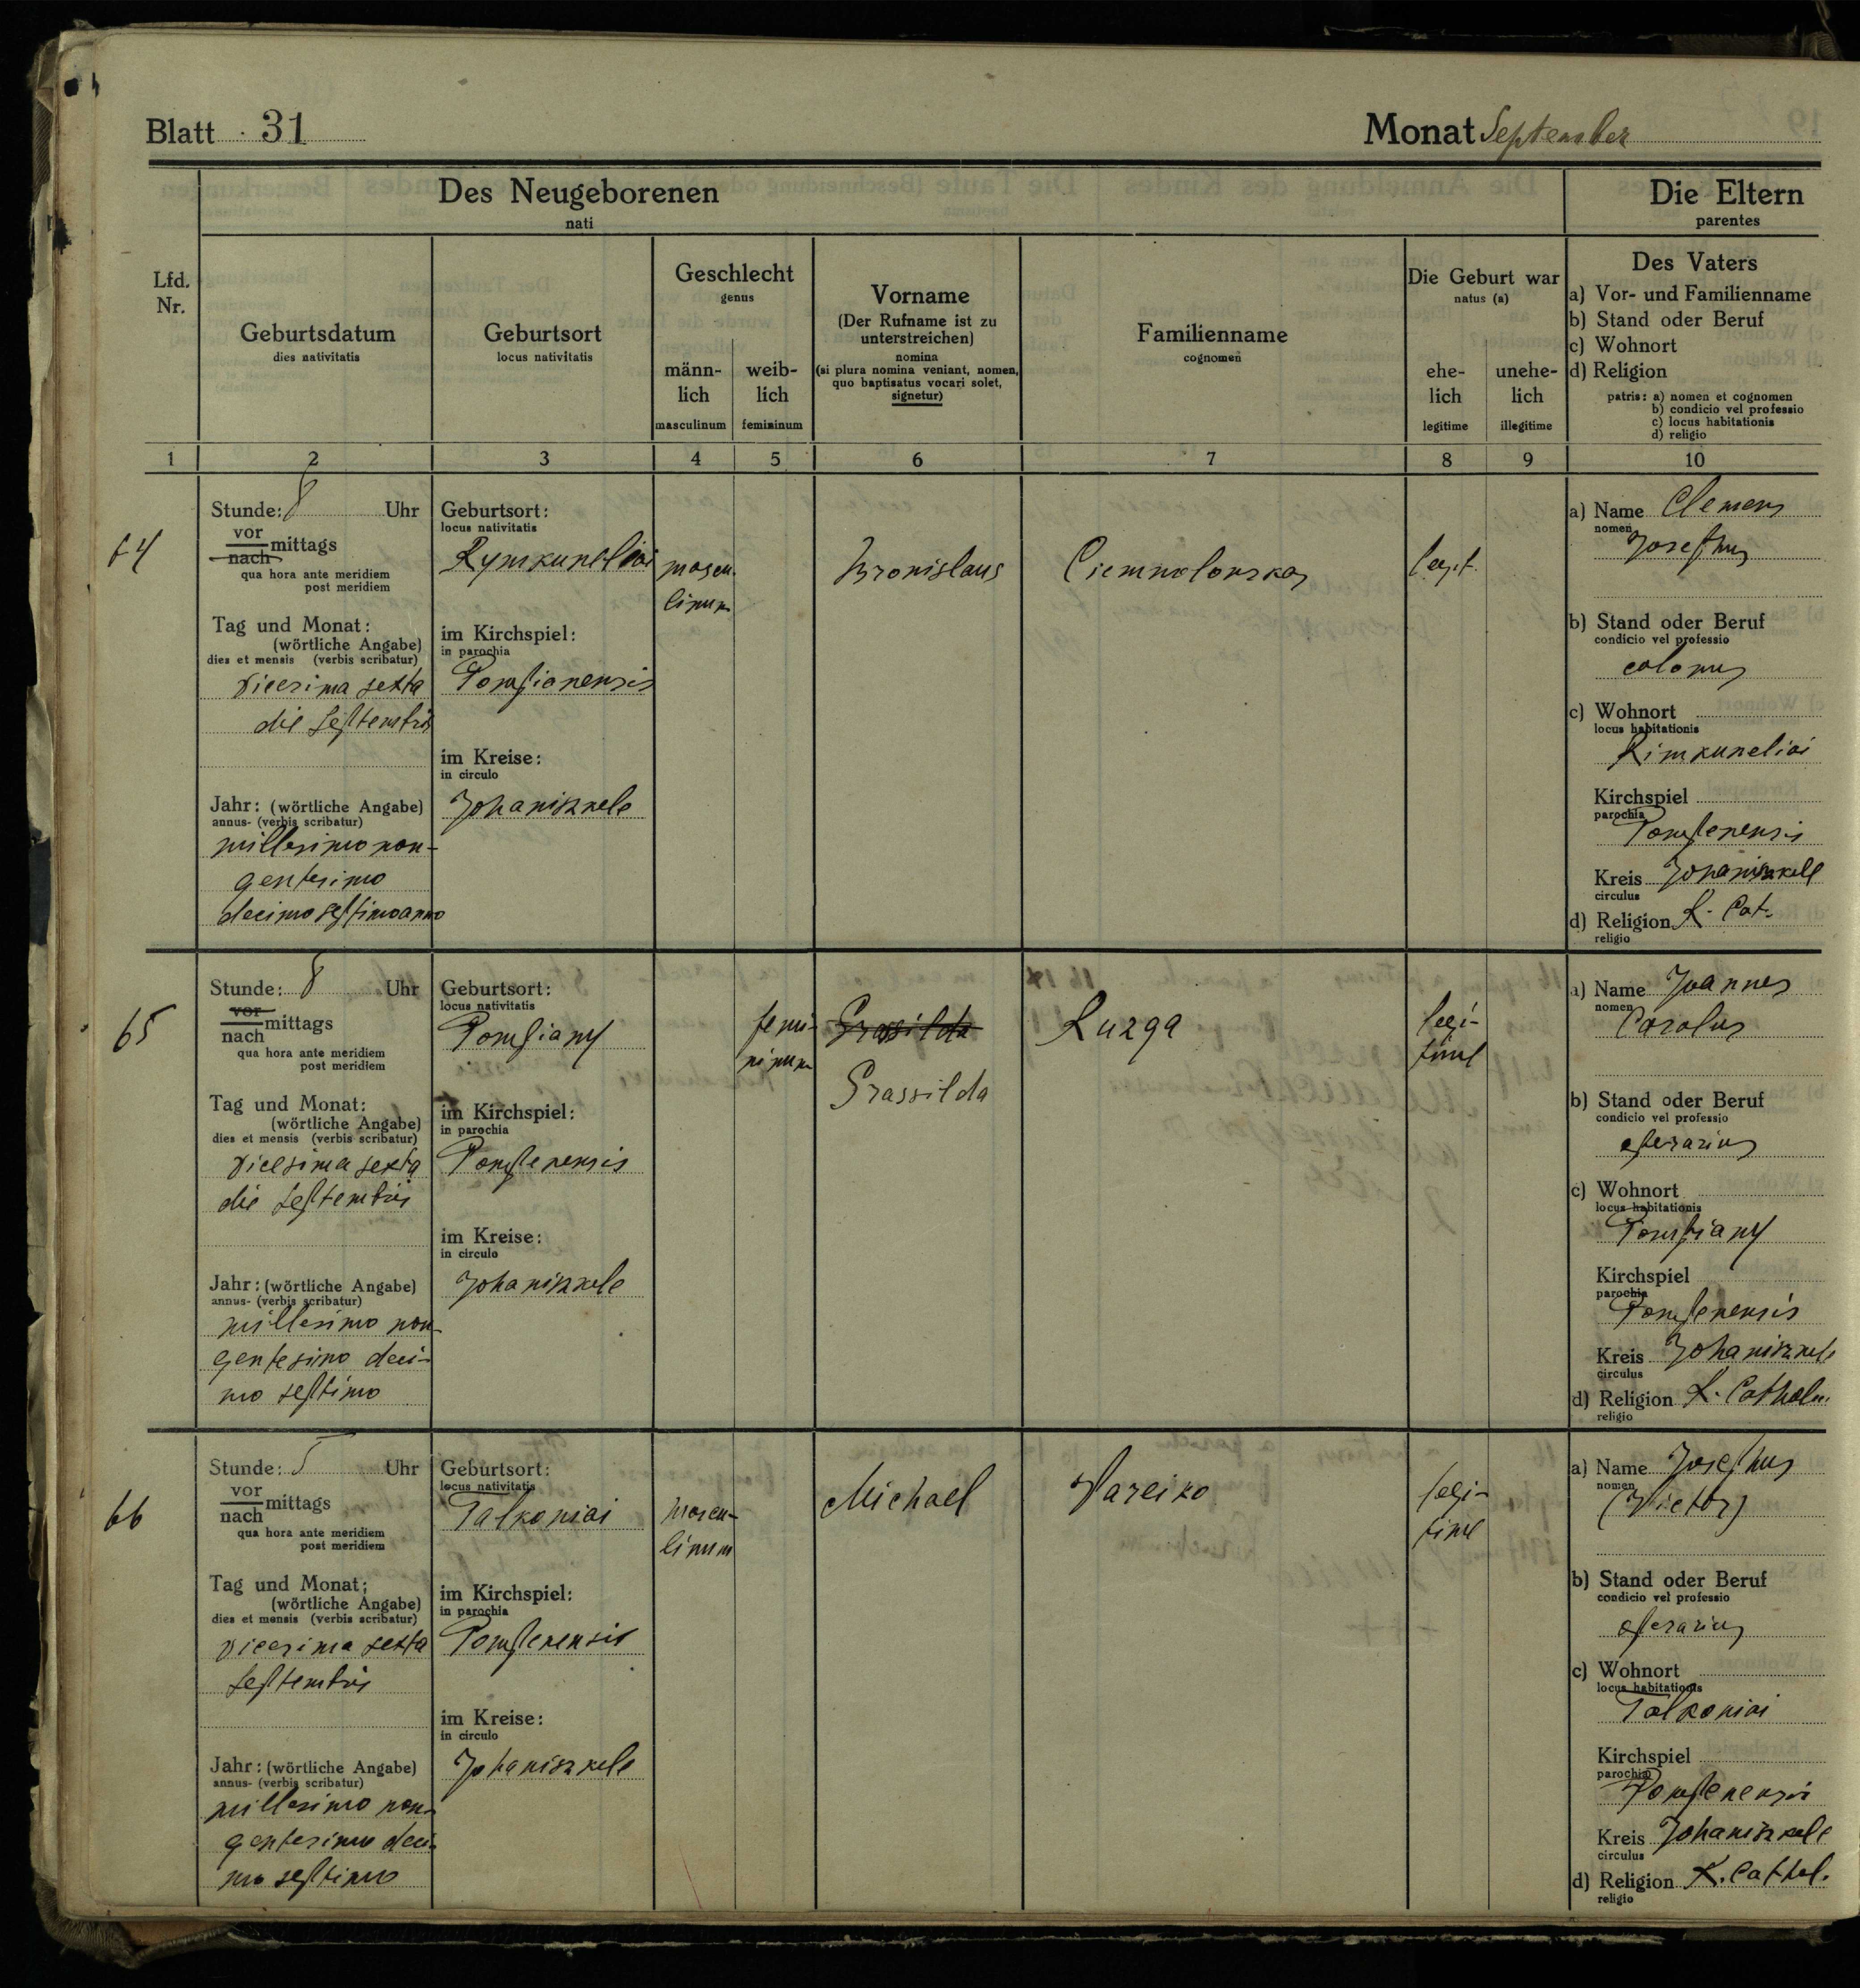 Blatt 31
Monat September
Des Neugeborenen
nati
Die Eltern
parentes
Lfd.
Nr.
Geburtsdatum
dies nativitatis
Geburtsort
locus nativitatis
Geschlecht
genus
männ-
lich
masculinum
weib-
lich
femininum
Vorname
(Der Rufname ist zu
unterstreichen)
nomina
(si plura nomina veniant, nomen,
quo baptisatus vocari solet,
signetur)
Familienname
cognomen
Die Geburt war
natus (a)
ehe-
lich
legitime
unehe-
lich
illegitime
Des Vaters
a) Vor- und Familienname
b) Stand oder Beruf
c) Wohnort
d) Religion
patris: a) nomen et cognomen
b) condicio vel professio
c) locus habitationis
d) religio
1 2 3 4 5 6 7 8 9 10
64
Stunde: 8 Uhr
vor
nach mittags
qua hora ante meridiem
post meridiem
Tag und Monat:
(wörtliche Angabe)
dies et mensis (verbis scribatur)
vicesima sexta
die septembris
Jahr: (wörtliche Angabe)
annus- (verbis scribatur)
millesimo non-
gentesimo
decimo septimo anno
Geburtsort:
locus nativitatis
Rymkuneliai
im Kirchspiel:
in parochia
im Kreise:
in circulo
Johaniszkele
mascu-
linum
Bronislaus
legit.
a) Name Clemens
nomen
Josephus
b) Stand oder Beruf
condicio vel professio
colonus
c) Wohnort
locus habitationis
Rimkuneliai
Kirchspiel
parochia
Pompenensis
Kreis Johaniszkele
circulus
d) Religion R. Cat.
religio
65
Stunde: 8 Uhr
vor
nach mittags
qua hora ante meridiem
post meridiem
Tag und Monat:
(wörtliche Angabe)
dies et mensis (verbis scribatur)
vicesima sexta
die septembris
Jahr: (wörtliche Angabe)
annus- (verbis scribatur)
millesimo non-
gentesimo deci-
mo septimo
Geburtsort:
locus nativitatis
Pompiany
im Kirchspiel:
in parochia
Pompenensis
im Kreise:
in circulo
Johaniszkele
femi-
ninum
Grassilda
Grassilda
Ruzga
legi-
time
a) Name Joannes
nomen
Carolus
b) Stand oder Beruf
condicio vel professio
operarius
c) Wohnort
locus habitationis
Pompiany
Kirchspiel
parochia
Pompenensis
Kreis Johaniszkele
circulus
d) Religion R. Cathol.
religio
66
Stunde: 5 Uhr
vor
nach mittags
qua hora ante meridiem
post meridiem
Tag und Monat:
(wörtliche Angabe)
dies et mensis (verbis scribatur)
vicesima sexta
septembris
Jahr: (wörtliche Angabe)
annus- (verbis scribatur)
millesimo non-
gentesimo deci-
mo septimo
Geburtsort:
locus nativitatis
Talkoniai
im Kirchspiel:
in parochia
Pompenensis
im Kreise:
in circulo
Johaniszkele
mascu-
linum
Michael
Vareiko
legi-
time
a) Name Josephus
nomen
(Victor)
b) Stand oder Beruf
condicio vel professio
operarius
c) Wohnort
locus habitationis
Talkoniai
Kirchspiel
parochia
Pompenensis
Kreis Johaniszkele
circulus
d) Religion R. Cathol.
religio